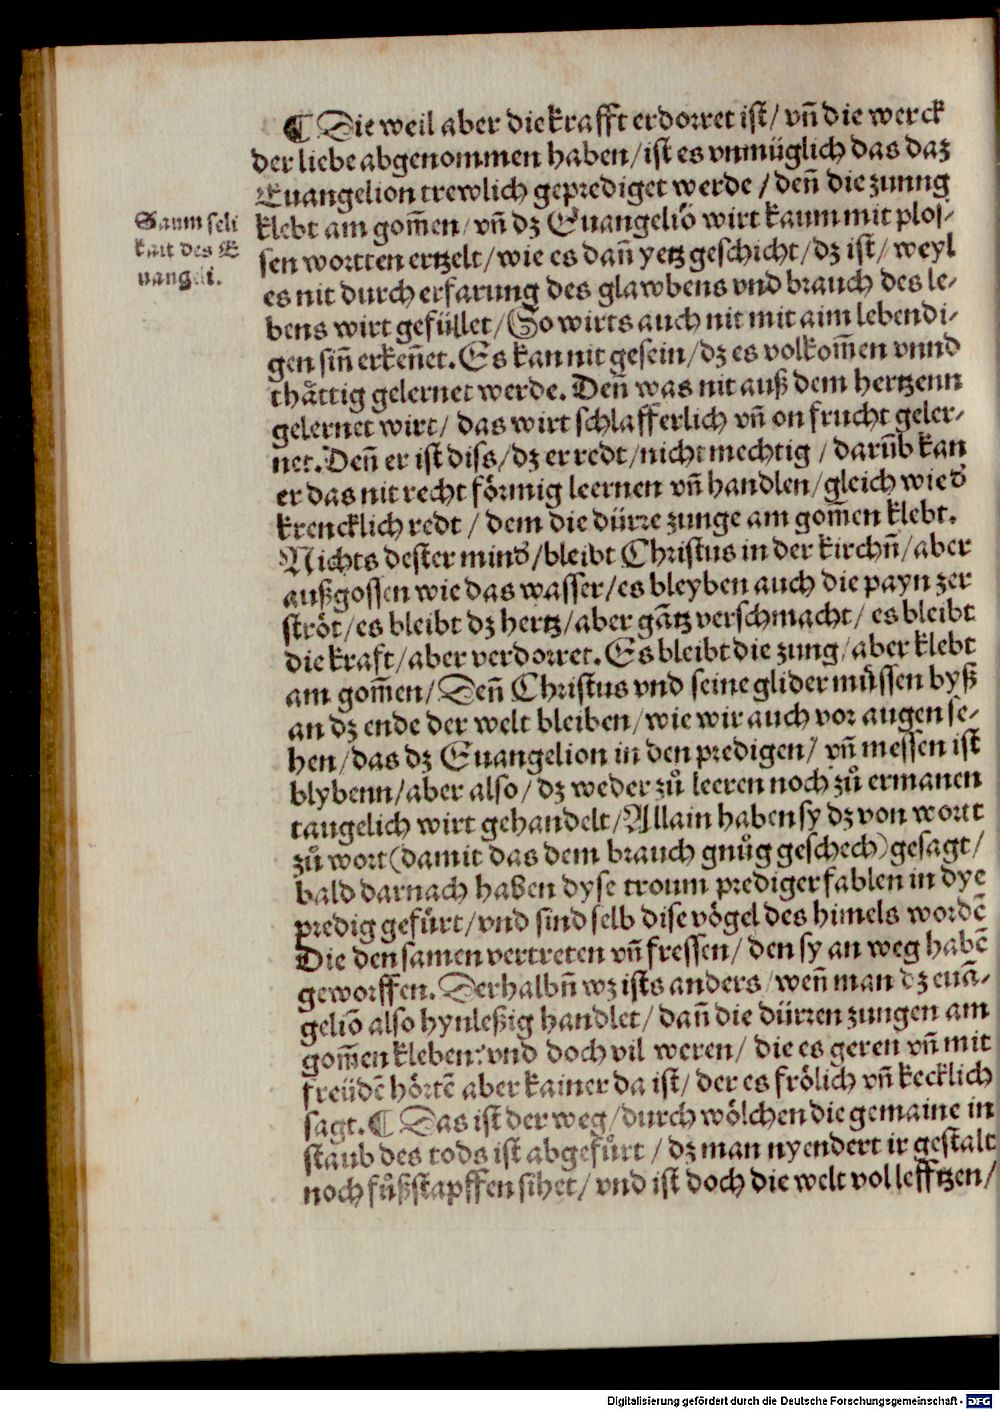 ¶ Die weil aber die krafft erdorret ist/ vn̄ die werck
der liebe abgenommen haben/ ist es vnmüglich das daz
Euangelion trewlich geprediget werde / den̄ die zunng
Saum seli
kait des E
uangeli.
klebt am gom̄en/ vn̄ dz Euangeliō wirt kaum mit plos-
sen wortten ertzelt/ wie es dan̄ yetz geschicht/ dz ist/ weyl
es nit durch erfarung des glawbens vnd brauch des le-
bens wirt gefüllet/ So wirts auch nit mit aim lebendi-
gen sin̄ erken̄et. Es kan nit gesein/ dz es volkom̄en vnnd
thåttig gelernet werde. Den̄ was nit auß dem hertzenn
gelernet wirt/ das wirt schlafferlich vn̄ on frucht geler-
net. Den̄ er ist diss/ dz er redt/ nicht mechtig / darūb kan
er das nit recht förmig leernen vn̄ handlen/ gleich wie d'
krencklich redt / dem die dürre zunge am gom̄en klebt.
Nichts dester mind'/ bleibt Christus in der kirchn̄/ aber
außgossen wie das wasser/ es bleyben auch die payn zer
ströt/ es bleibt dz hertz/ aber gātz verschmacht/ es bleibt
die kraft/ aber verdorret. Es bleibt die zung/ aber klebt
am gom̄en/ Den̄ Christus vnd seine glider müssen byß
an dz ende der welt bleiben/ wie wir auch vor augen se-
hen/ das dz Euangelion in den predigen/ vn̄ messen ist
blybenn/ aber also/ dz weder zů leeren noch zů ermanen
taugelich wirt gehandelt/ Allain haben sy dz von wortt
zů wort (damit das dem brauch gnůg geschech) gesagt/
bald darnach haben dyse troum prediger fablen in dye
predig gefůrt/ vnd sind selb dise vögel des himels wordē
Die den samen vertreten vn̄ fressen/ den sy an weg habē
geworffen. Derhalbn̄ wz ists anders/ wen̄ man dz euā-
geliō also hynleßig handlet/ dan̄ die dürren zungen am
gom̄en kleben: vnd doch vil weren/ die es geren vn̄ mit
freüdē hörtē aber kainer da ist/ der es frölich vn̄ kecklich
sagt. ¶ Das ist der weg/ durch wölchen die gemaine in
staub des tods ist abgefůrt / dz man nyendert ir gestalt
noch fůßstapffen sihet/ vnd ist doch die welt vol lefftzen/
Digitalisierung gefördert durch die Deutsche Forschungsgemeinschaft - DFG